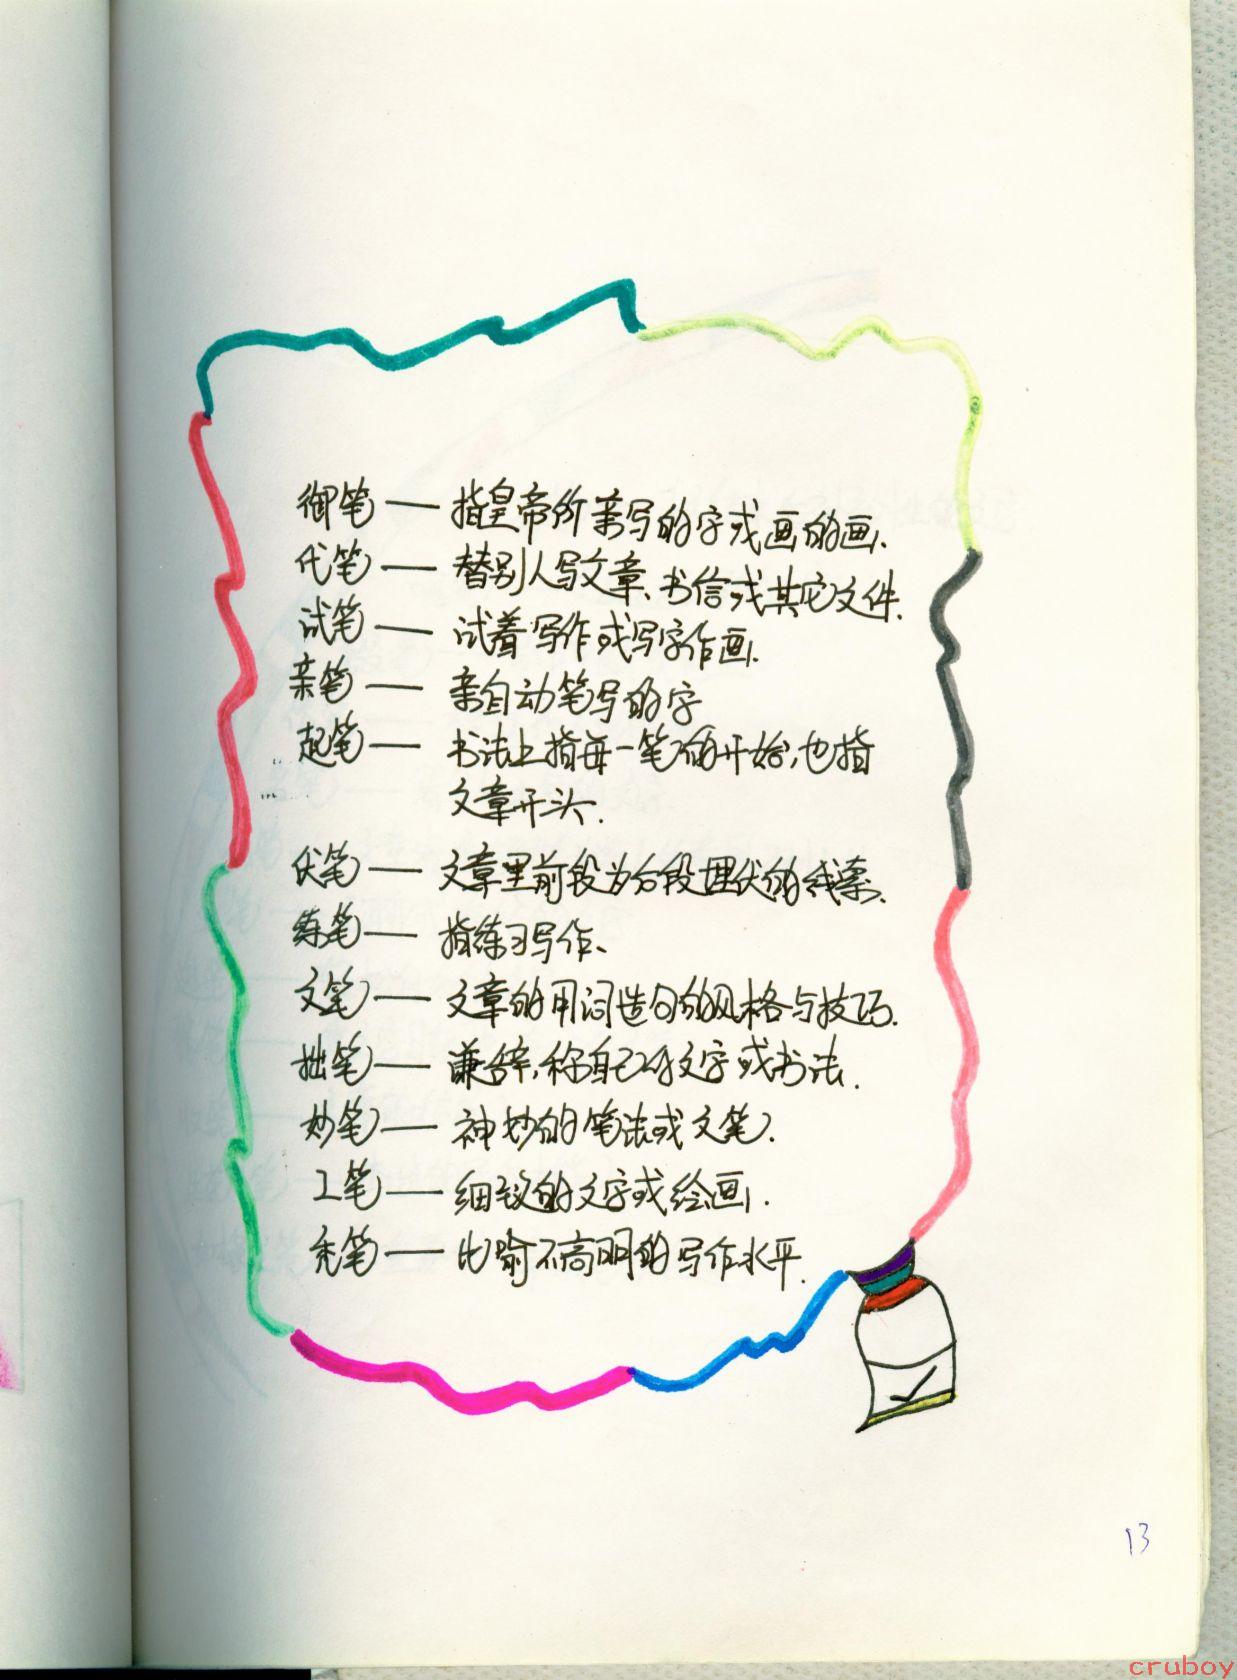 御笔——指皇帝所亲写的字或画的画.
代笔——替别人写文章、书信或其它文件.
试笔——试着写作或写字作画.
亲笔——亲自动笔写的字
起笔——书法上指每一笔的开始,也指
文章开头.
伏笔——文章里前段为后段埋伏的线索.
练笔——指练习写作、
文笔——文章的用词造句的风格与技巧.
拙笔——谦辞,称自己的文字或书法.
妙笔——神妙的笔法或文笔.
工笔——细致的文字或绘画.
秃笔——比喻不高明的写作水平.
13
cruboy